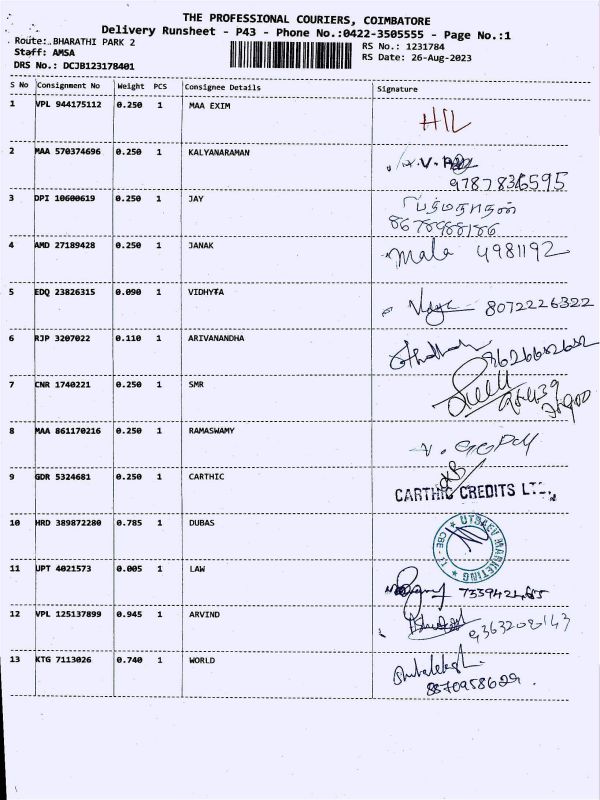 THE PROFESSIONAL COURIERS, COIMBATORE
Delivery Runsheet - P43 - Phone No.:0422-3505555 - Page No.:1
Route: BHARATHI PARK 2
RS No.: 1231784
Staff: AMSA
RS Date: 26-Aug-2023
DRS No.: DCJB123178401
S No Consignment No Weight PCS Consignee Details Signature
1 VPL 944175112 0.250 1 MAA EXIM
HIL
2 MAA 570374696 0.250 1 KALYANARAMAN
9787836595
3 DPI 10600619 0.250 1 JAY
பத்மநாதன்
8678988186
4 AMD 27189428 0.250 1 JANAK
Mala 4981192
5 EDQ 23826315 0.090 1 VIDHYTA
8072226322
6 RJP 3207022 0.110 1 ARIVANANDHA
9626682682
7 CNR 1740221 0.250 1 SMR
8 MAA 861170216 0.250 1 RAMASWAMY
V. GOPAL
9 GDR 5324681 0.250 1 CARTHIC
CARTHIC CREDITS LTD.
10 HRD 389872280 0.785 1 DUBAS
UTSAEV MARKETING
CBE - 11
11 UPT 4021573 0.005 1 LAW
12 VPL 125137899 0.945 1 ARVIND
9363208143
13 KTG 7113026 0.740 1 WORLD
8870958629